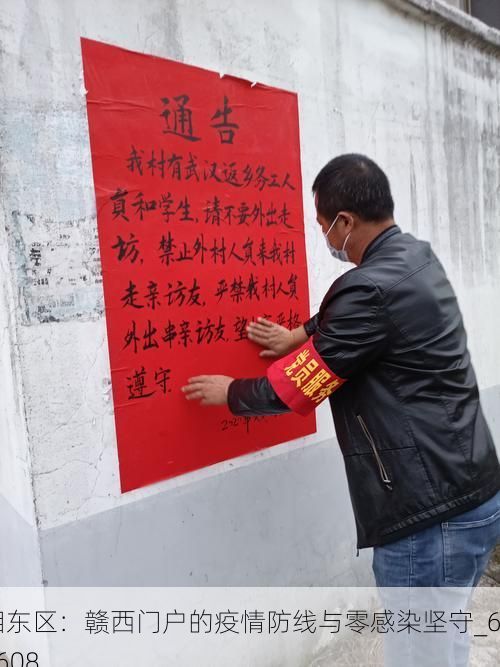 通告
我村有武汉返乡务工人
员和学生,请不要外出走
坊,禁止外村人员来我村
走亲访友,严禁我村人员
外出串亲访友,望
严格
遵守.
党员服务
湘东区：赣西门户的疫情防线与零感染坚守_6
608